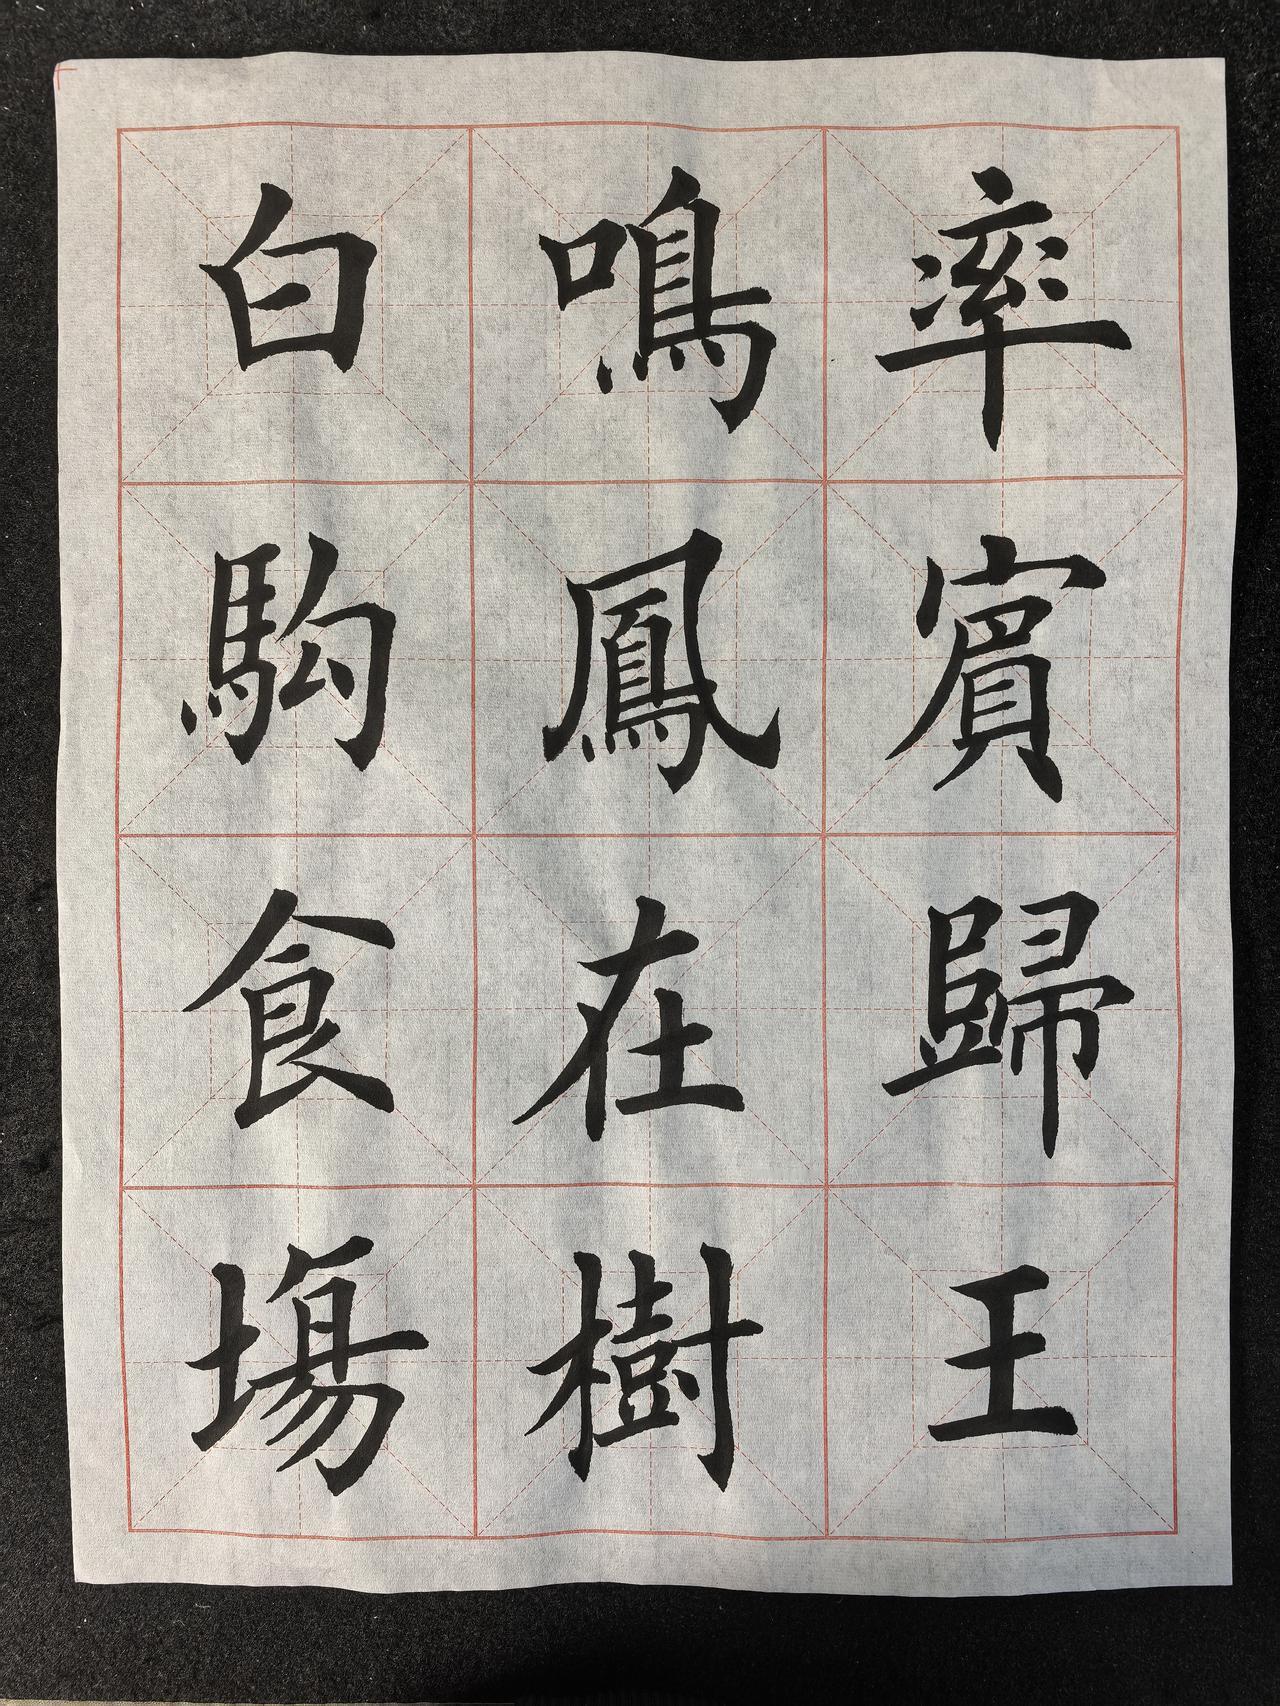 率賓歸王
鳴鳳在樹
白駒食場